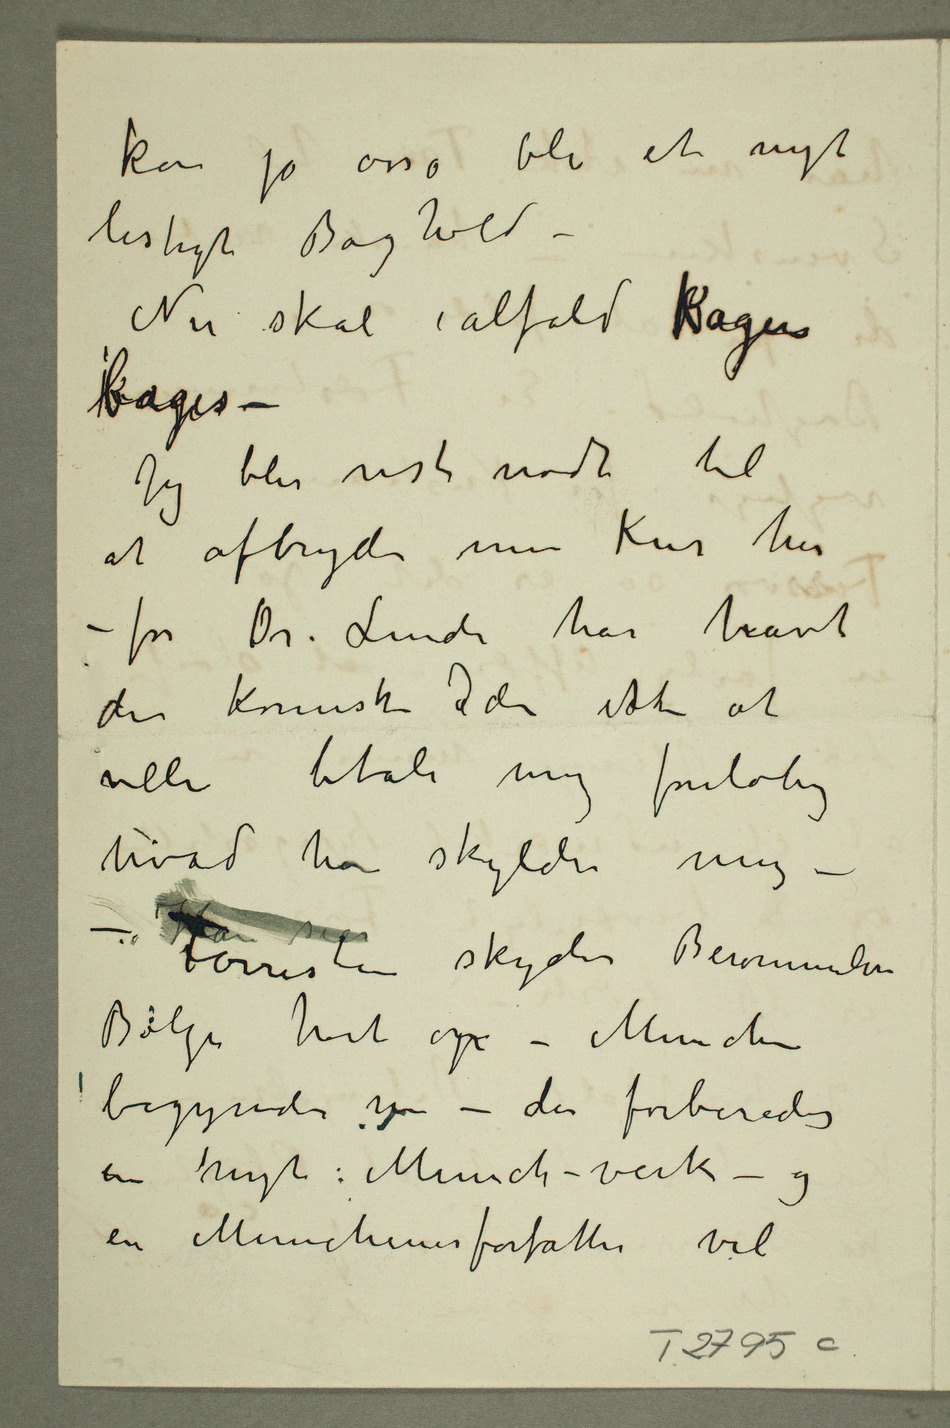 kan jo osså bli et nyt
listigt Baghold –
Nu skal ialfald Kagen
bages –
Jeg blir nist nødt til
at afbryde min Kur her
– for Dr. Linde har havt
den komiske Ide ikke at
ville betale mig foreløbig
hvad han skylder mig –
– Han siger
forresten skyder Berømmelsen
Bølge høit op – München
begynder nu – der forberedes
en nyt: Munch-verk – og
en Münchenerforfatter vil
T 2795 c